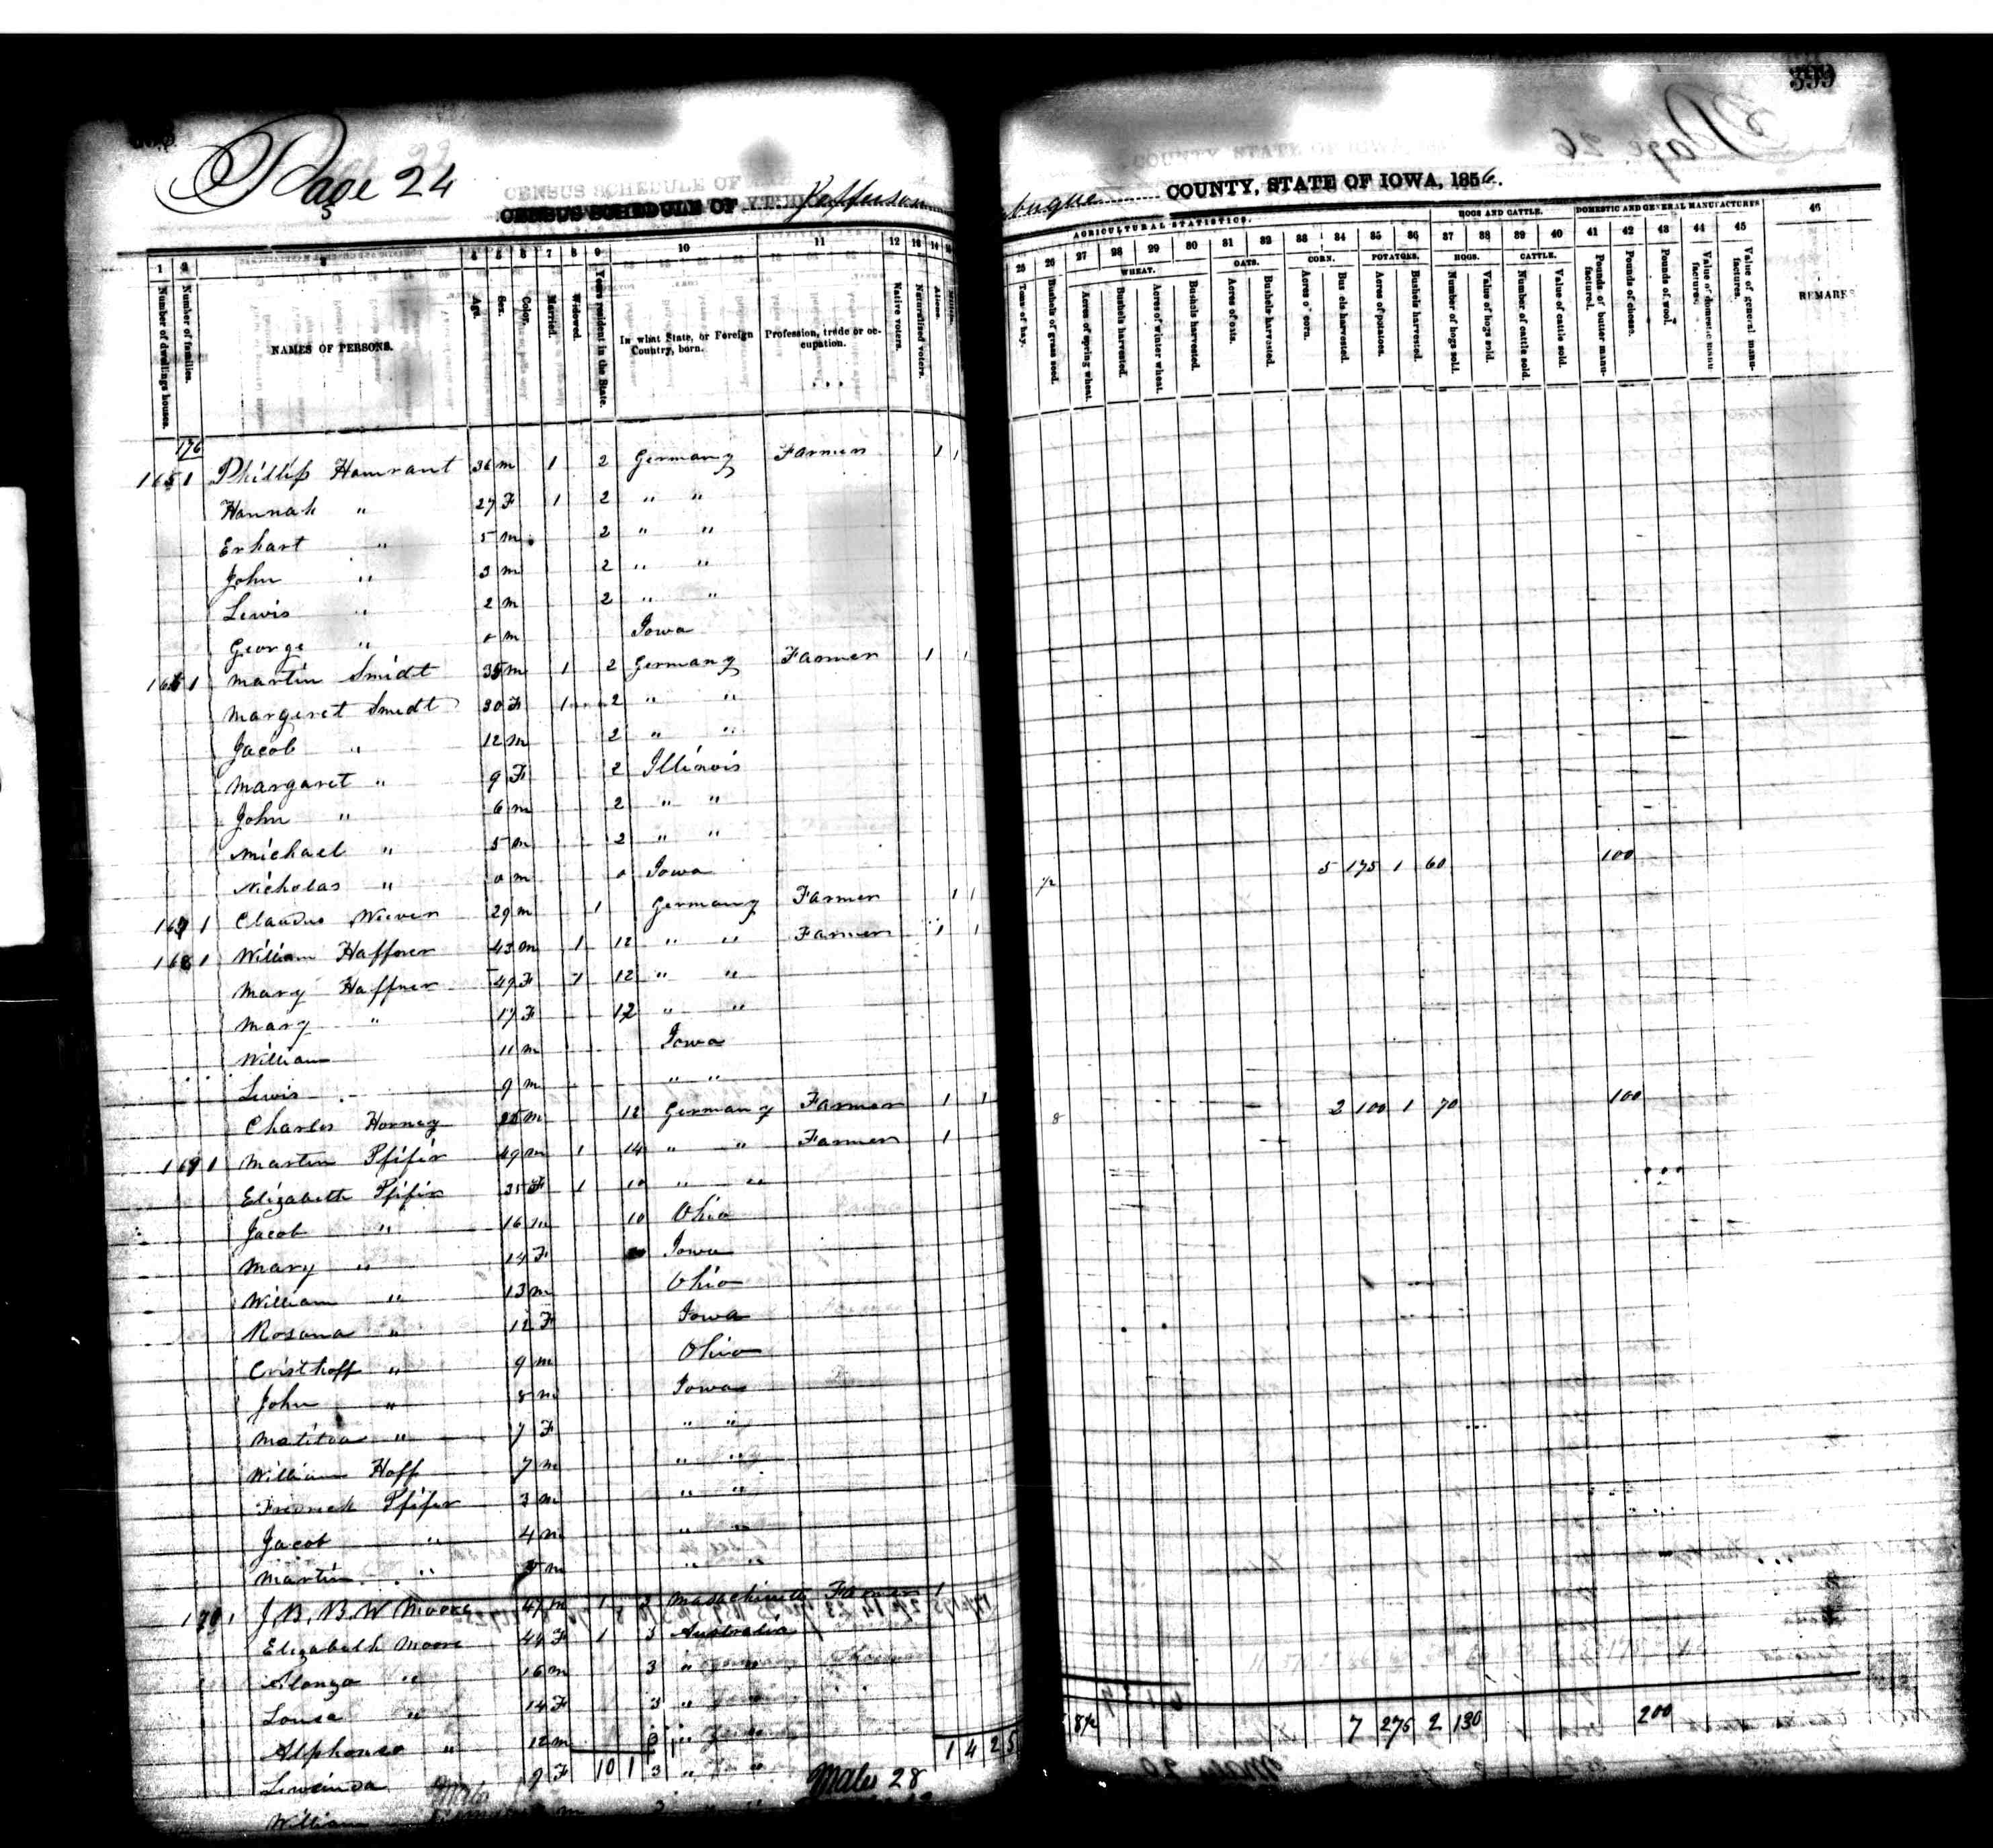 Page 24
CENSUS SCHEDULE OF
CENSUS SCHEDULE OF Jefferson
COUNTY, STATE OF IOWA, 1856.
399
AGRICULTURAL STATISTICS. HOGS AND CATTLE. DOMESTIC AND GENERAL MANUFACTURES
1 2 3 4 5 6 7 8 9 10 11 12 13 14
25 26 27 28 29 30 31 32 33 34 35 36 37 38 39 40 41 42 43 44 45 46
WHEAT. OATS. CORN. POTATOES. HOGS. CATTLE.
Number of dwellings houses.
Number of families.
NAMES OF PERSONS.
Age.
Sex.
Color.
Married.
Widowed.
Years resident in the State.
In what State, or Foreign Country, born.
Profession, trade or occupation.
Native voters.
Naturalized voters.
Aliens.
Tons of hay.
Bushels of grass seed.
Acres of spring wheat.
Bushels harvested.
Acres of winter wheat.
Bushels harvested.
Acres of oats.
Bushels harvested.
Acres of corn.
Bushels harvested.
Acres of potatoes.
Bushels harvested.
Number of hogs sold.
Value of hogs sold.
Number of cattle sold.
Value of cattle sold.
Pounds of butter manufactured.
Pounds of cheese.
Pounds of wool.
Value of domestic manufactures.
Value of general manufactures.
REMARKS
176
165 1 Phillip Hamrant 36 m 1 2 Germany Farmer 1 1
Hannah " 27 F 1 2 " "
Erhart " 5 m 2 " "
John " 3 m 2 " "
Lewis " 2 m 2 " "
George " 0 m Iowa
166 1 Martin Smidt 35 m 1 2 Germany Farmer 1 1
Margeret Smidt 30 F 1 2 " "
Jacob " 12 m 2 " "
Margaret " 9 F 2 Illinois
John " 6 m 2 " "
Michael " 5 m 2 " "
Nicholas " 0 m 0 Iowa
167 1 Claudus Weiver 29 m 1 Germany Farmer 1 1 1/2 5 175 1 60 100
168 1 William Haffner 43 m 1 12 " " Farmer 1 1
Mary Haffner 49 F 1 12 " "
Mary " 17 F 12 " "
William 11 m Iowa
Lewis 9 m " "
Charles Horney 25 m 12 Germany Farmer 1 1
169 1 Martin Pfifir 49 m 1 14 " " Farmer 1 8 2 100 1 70 100
Elizabeth Pfifir 35 F 1 10 " "
Jacob " 16 m 10 Ohio
Mary " 14 F Iowa
William " 13 m Ohio
Rosana " 12 F Iowa
Cristhoff " 9 m Ohio
John " 8 m Iowa
Matilda " 7 F " "
William Hoff 7 m " "
Fredrick Pfifer 3 m " "
Jacob " 4 m " "
Martin " m " "
170 1 J. B. B. W Moore 47 m 1 3 Masachusetts Farmer 1
Elizabeth Moore 44 F 1 3 Australia
Alonzo " 16 m 3 "
Louisa " 14 F 3 "
Alphonso " 12 m 3 "
Lewcinda 9 F 3 " "
William m
10 1 1 4 2 5 8 1/2 7 275 2 130 200
Males 28